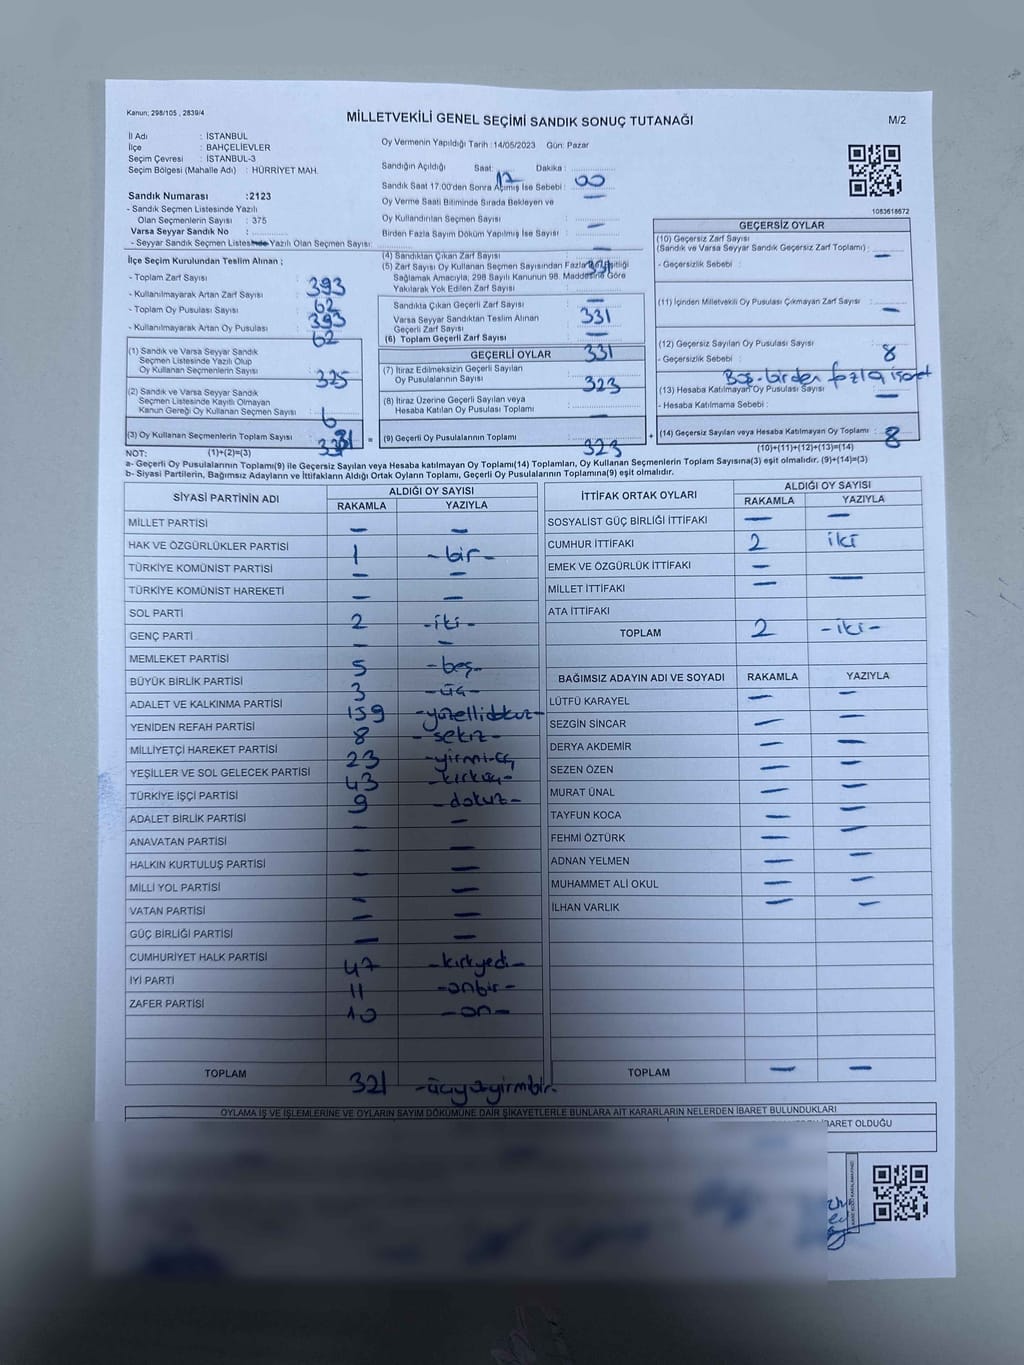 Kanun; 298/105 , 2839/4
MİLLETVEKİLİ GENEL SEÇİMİ SANDIK SONUÇ TUTANAĞI
M/2
İl Adı : İSTANBUL
İlçe : BAHÇELİEVLER
Seçim Çevresi : İSTANBUL-3
Seçim Bölgesi (Mahalle Adı) : HÜRRİYET MAH.
Oy Vermenin Yapıldığı Tarih :14/05/2023 Gün: Pazar
Sandığın Açıldığı Saat: 17 Dakika : 00
Sandık Saat 17.00'den Sonra Açılmış İse Sebebi : —
Oy Verme Saati Bitiminde Sırada Bekleyen ve
Oy Kullandırılan Seçmen Sayısı : —
Birden Fazla Sayım Döküm Yapılmış İse Sayısı : —
Sandık Numarası :2123
- Sandık Seçmen Listesinde Yazılı
Olan Seçmenlerin Sayısı : 375
Varsa Seyyar Sandık No :
- Seyyar Sandık Seçmen Listesinde Yazılı Olan Seçmen Sayısı:
1083618672
İlçe Seçim Kurulundan Teslim Alınan ;
- Toplam Zarf Sayısı : 393
- Kullanılmayarak Artan Zarf Sayısı : 62
- Toplam Oy Pusulası Sayısı : 393
- Kullanılmayarak Artan Oy Pusulası : 62
(1) Sandık ve Varsa Seyyar Sandık
Seçmen Listesinde Yazılı Olup
Oy Kullanan Seçmenlerin Sayısı : 325
(2) Sandık ve Varsa Seyyar Sandık
Seçmen Listesinde Kayıtlı Olmayan
Kanun Gereği Oy Kullanan Seçmen Sayısı : 6
(3) Oy Kullanan Seçmenlerin Toplam Sayısı : 331
(4) Sandıktan Çıkan Zarf Sayısı : 331
(5) Zarf Sayısı Oy Kullanan Seçmen Sayısından Fazla İse Eşitliği
Sağlamak Amacıyla, 298 Sayılı Kanunun 98. Maddesine Göre
Yakılarak Yok Edilen Zarf Sayısı : —
Sandıkta Çıkan Geçerli Zarf Sayısı : 331
Varsa Seyyar Sandıktan Teslim Alınan
Geçerli Zarf Sayısı : —
(6) Toplam Geçerli Zarf Sayısı : 331
GEÇERLİ OYLAR
(7) İtiraz Edilmeksizin Geçerli Sayılan
Oy Pusulalarının Sayısı : 323
(8) İtiraz Üzerine Geçerli Sayılan veya
Hesaba Katılan Oy Pusulası Toplamı : —
= (9) Geçerli Oy Pusulalarının Toplamı : 323
GEÇERSİZ OYLAR
(10) Geçersiz Zarf Sayısı
(Sandık ve Varsa Seyyar Sandık Geçersiz Zarf Toplamı) : —
- Geçersizlik Sebebi :
(11) İçinden Milletvekili Oy Pusulası Çıkmayan Zarf Sayısı : —
(12) Geçersiz Sayılan Oy Pusulası Sayısı : 8
- Geçersizlik Sebebi : Boş - birden fazla işaret
(13) Hesaba Katılmayan Oy Pusulası Sayısı : —
- Hesaba Katılmama Sebebi :
+ (14) Geçersiz Sayılan veya Hesaba Katılmayan Oy Toplamı : 8
NOT: (1)+(2)=(3)
(10)+(11)+(12)+(13)=(14)
a- Geçerli Oy Pusulalarının Toplamı(9) ile Geçersiz Sayılan veya Hesaba katılmayan Oy Toplamı(14) Toplamları, Oy Kullanan Seçmenlerin Toplam Sayısına(3) eşit olmalıdır. (9)+(14)=(3)
b- Siyasi Partilerin, Bağımsız Adayların ve İttifakların Aldığı Ortak Oyların Toplamı, Geçerli Oy Pusulalarının Toplamına(9) eşit olmalıdır.
SİYASİ PARTİNİN ADI ALDIĞI OY SAYISI
RAKAMLA YAZIYLA
MİLLET PARTİSİ — —
HAK VE ÖZGÜRLÜKLER PARTİSİ 1 -bir-
TÜRKİYE KOMÜNİST PARTİSİ — —
TÜRKİYE KOMÜNİST HAREKETİ — —
SOL PARTİ 2 -iki-
GENÇ PARTİ — —
MEMLEKET PARTİSİ 5 -beş-
BÜYÜK BİRLİK PARTİSİ 3 -üç-
ADALET VE KALKINMA PARTİSİ 159 -yüzellidokuz-
YENİDEN REFAH PARTİSİ 8 -sekiz-
MİLLİYETÇİ HAREKET PARTİSİ 23 -yirmiüç
YEŞİLLER VE SOL GELECEK PARTİSİ 43 -kırküç-
TÜRKİYE İŞÇİ PARTİSİ 9 -dokuz-
ADALET BİRLİK PARTİSİ — —
ANAVATAN PARTİSİ — —
HALKIN KURTULUŞ PARTİSİ — —
MİLLİ YOL PARTİSİ — —
VATAN PARTİSİ — —
GÜÇ BİRLİĞİ PARTİSİ — —
CUMHURİYET HALK PARTİSİ 47 -kırkyedi-
İYİ PARTİ 11 -onbir-
ZAFER PARTİSİ 10 -on-
TOPLAM 321 -üçyüzyirmibir-
İTTİFAK ORTAK OYLARI ALDIĞI OY SAYISI
RAKAMLA YAZIYLA
SOSYALİST GÜÇ BİRLİĞİ İTTİFAKI — —
CUMHUR İTTİFAKI 2 iki
EMEK VE ÖZGÜRLÜK İTTİFAKI —
MİLLET İTTİFAKI — —
ATA İTTİFAKI
TOPLAM 2 -iki-
BAĞIMSIZ ADAYIN ADI VE SOYADI RAKAMLA YAZIYLA
LÜTFÜ KARAYEL — —
SEZGİN SİNCAR — —
DERYA AKDEMİR — —
SEZEN ÖZEN — —
MURAT ÜNAL — —
TAYFUN KOCA — —
FEHMİ ÖZTÜRK — —
ADNAN YELMEN — —
MUHAMMET ALİ OKUL — —
İLHAN VARLIK — —
TOPLAM — —
OYLAMA İŞ VE İŞLEMLERİNE VE OYLARIN SAYIM DÖKÜMÜNE DAİR ŞİKAYETLERLE BUNLARA AİT KARARLARIN NELERDEN İBARET BULUNDUKLARI
İBARET OLDUĞU